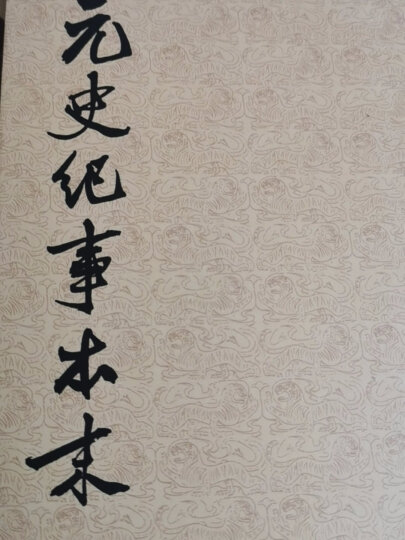 元史纪事本末